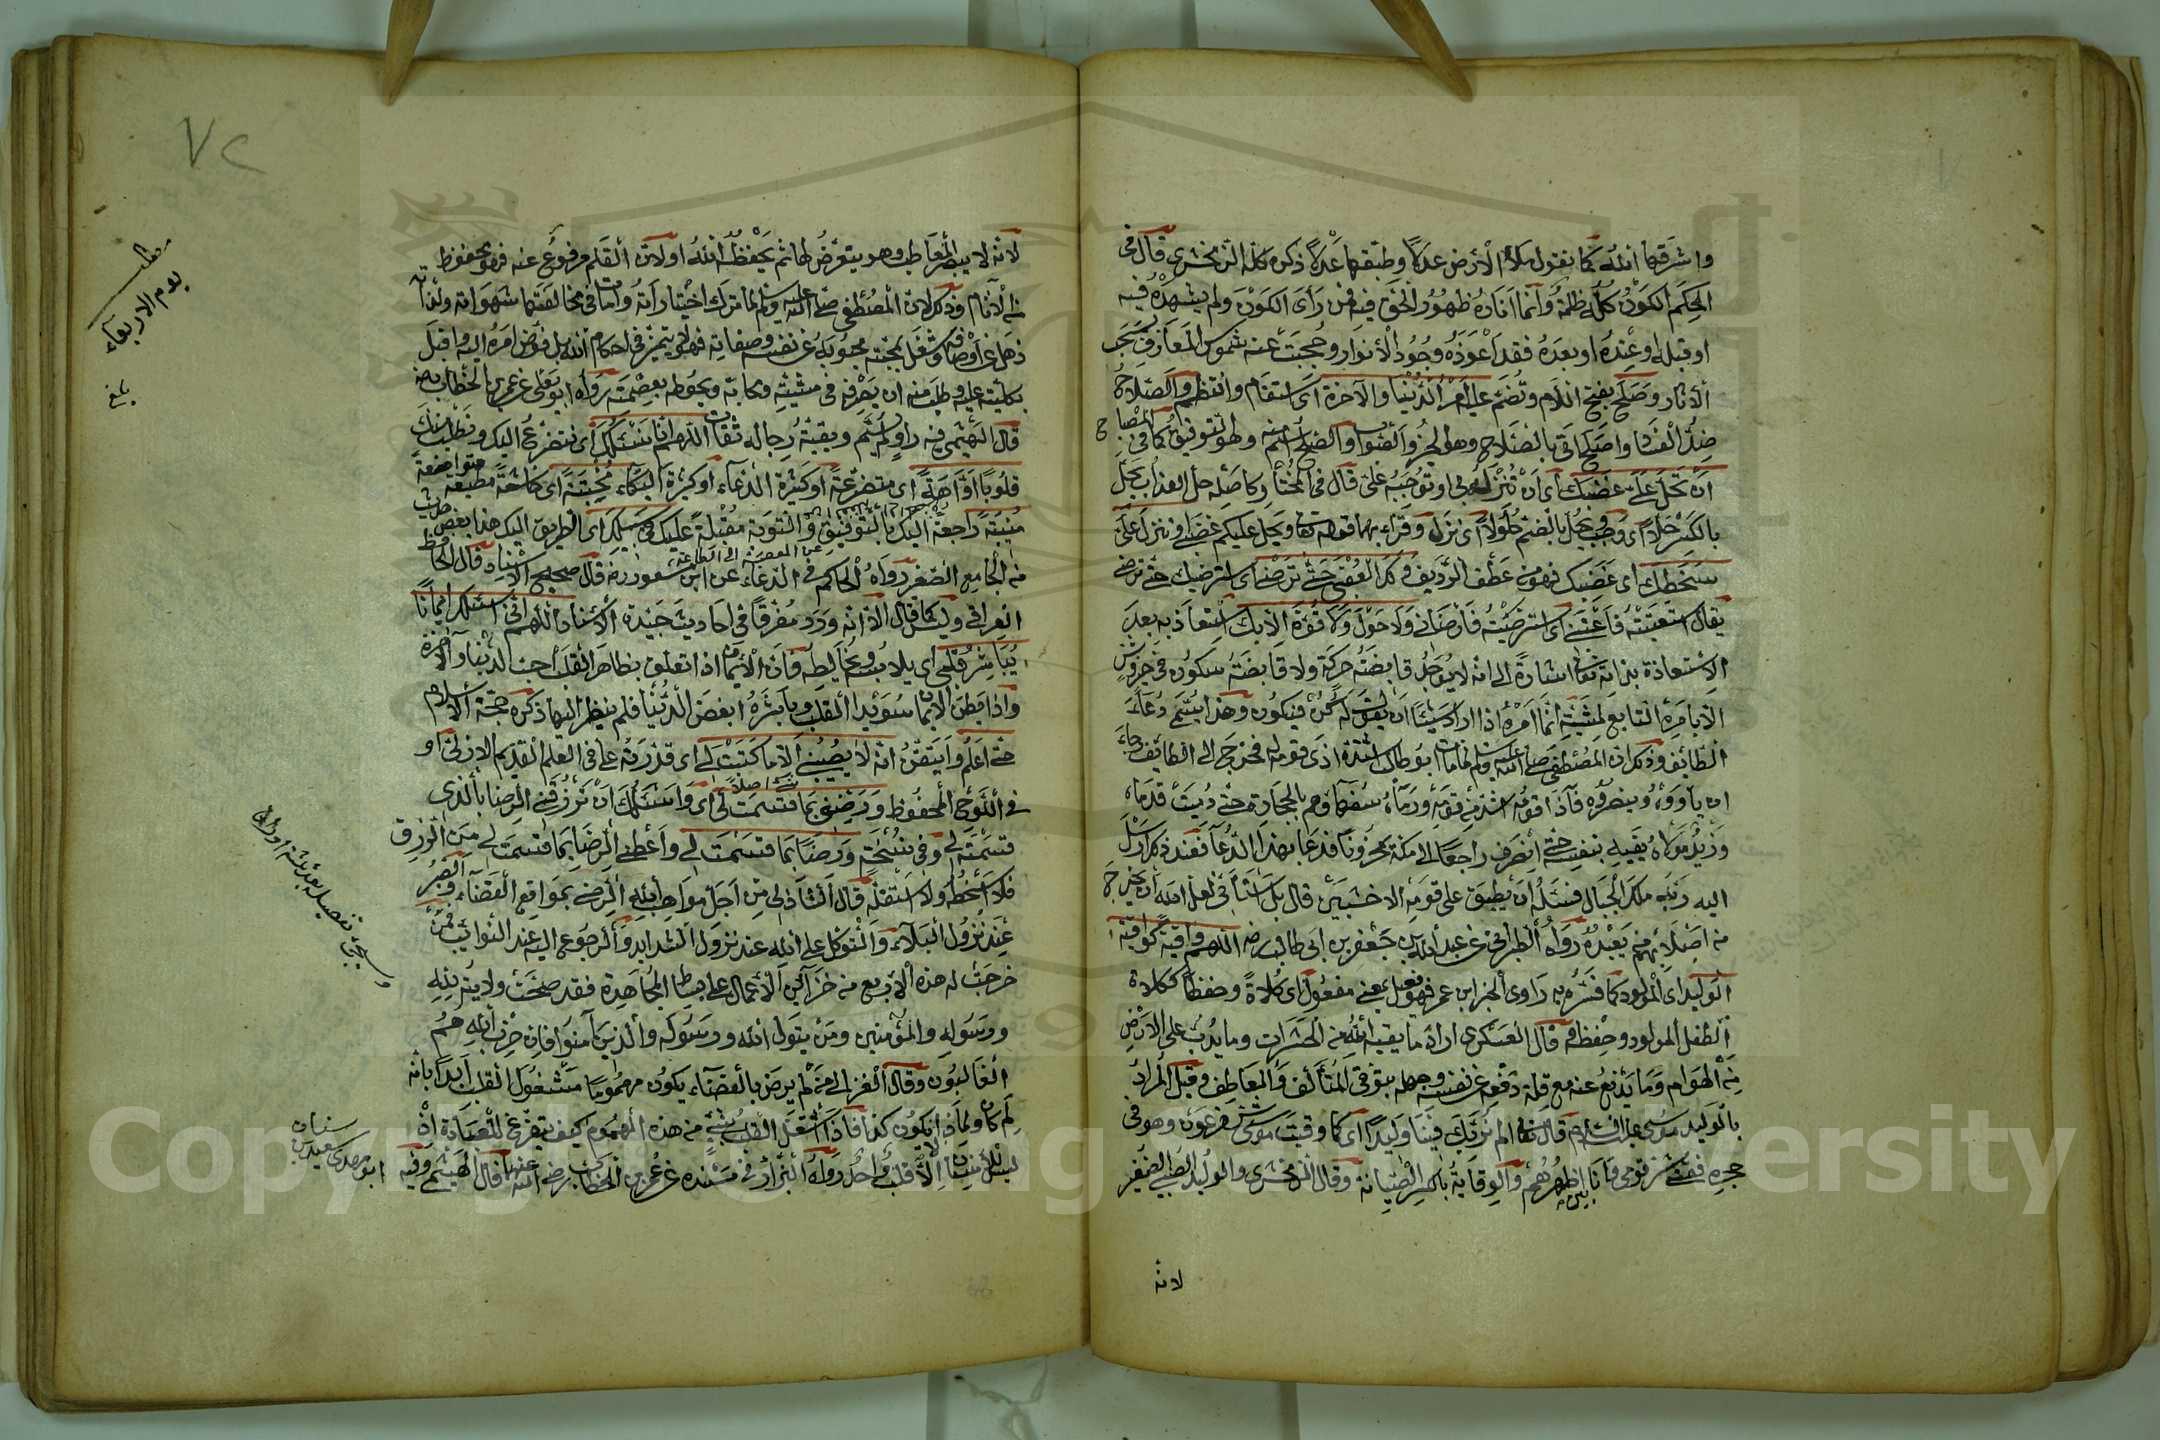 واشرقها الله كما نقول ملأ الارض عدلا وطبقها عدلا ذكره كله الزمخشري قال في
الحكم الكون كله ظلمة وانما اناره ظهور الحق فيه فمن رأى الكون ولم يشهده فيه
او قبله او عنده او بعده فقد اعوزه وجود الانوار وحجبت عنه شموس المعارف بسحب
الآثار وصلح بفتح اللام وتضم عليه امر الدنيا والآخرة اى استقام وانتظم والصلاح
ضد الفساد واصلح اتى بالصلاح وهو الخير والصواب والصلح اسم منه وهو التوفيق كما في المصباح
ان تحل على غضبك اى ان تنزله بي او توجبه على قال في المختار كاصله حل العذاب يحل
بالكسر حلالا اى وجب ويحل بالضم حلولا اى نزل وقرئ بهما قوله تعالى ويحل عليكم غضبي او تنزل على
سخطك اى غضبك فهو من عطف الرديف ولك العتبى حتى ترضى اى استرضيك حتى ترضى
يقال استعتبته فاعتبني اى استرضيته فارضاني ولا حول ولا قوة الا بك استعاذ به بعد
الاستعاذة بذاته تعالى اشارة الى انه لا يوجد قابضة حركة ولا قابضة سكون في خير وشر
الا بامره التابع لمشيئته انما امره اذا اراد شيئا ان يقول له كن فيكون وهذا يسمى دعاء
الطائف وذكر ان المصطفى صلى الله عليه وسلم لما مات ابو طالب اشتد اذى قومه له فخرج الى الطائف رجاء
ان يأووه وينصروه فآذوه قوم اشد من قومه ورماه سفهاؤهم بالحجارة حتى دميت قدماه
وزيد مولاه يقيه بنفسه حتى انصرف راجعا الى مكة محزونا فدعا بهذا الدعاء فعند ذلك ارسل
اليه ربه ملك الجبال فسأله ان يطبق على قومه الاخشبين قال بل استأني لعل الله ان يخرج
من اصلابهم من يعبده رواه الطبراني عن عبد الله بن جعفر بن ابي طالب رضه اللهم واقية كواقية
الوليد اى المولود كما فسره به راوى الخبر ابن عمر فهو فعيل بمعنى مفعول اى كلاءة وحفظا ككلاءة
الطفل المولود وحفظه قال العسكري اراد ما يقيه الله من الحشرات وما يدب على الارض
من الهوام وما يدفع عنه مع قلة دفعه عن نفسه وجهله بتوقي المتآلف والمعاطف وقيل المراد
بالوليد موسى عليه السلام قال تعالى الم نربك فينا وليدا اى كما وقيت موسى شر فرعون وهو في
حجره فقني شر قومي وانا بين اظهرهم والوقاية بالكسر الصيانة وقال الزمخشري والوليد الصبي الصغير
لانه
لانه لا يبصر المعاطب وهو يتعرض لها ثم يحفظه الله او لان القلم مرفوع عنه فهو محفوظ
من الآثام وذكر ان المصطفى صلى الله عليه وسلم لما ترك اختياراته وامات في مخالفتها شهواته ولذاته
ذهل عن اوصافه وشغل بمحبة محبوبه عن نفسه وصفاته فهو لا يتميز في احكام الله بل فوض امره اليه واقبل
بكليته عليه وطلب منه ان يصرفه في مشيئته ومحابه ويحوطه بعصمته رواه ابو يعلى عن عمر بن الخطاب رضه
قال الهيثمي فيه راو لم يسم وبقية رجاله ثقات اللهم انا نسئلك اى نتضرع اليك ونطلب منك
قلوبا اواهة اى متضرعة او كثيرة الدعاء او كثيرة البكاء مخبتة اى خاشعة مطيعة متواضعة
منيبة راجعة اليك بالتوفيق والتوبة مقبلة عليك في سبيلك اى الطريق اليك هذا بعض حديث
من الجامع الصغير رواه الحاكم في الدعاء عن ابن مسعود رضه قال صحيح الاسناد قال الحافظ
عن المعصية الى الطاعة
العراقي وليس كما قال الا انه ورد مفرقا في احاديث جيدة الاسناد اللهم اني اسئلك ايمانا
يباشر قلبي اى يلابسه ويخالطه فان الايمان اذا تعلق بظاهر القلب احب الدنيا والآخرة
واذا بطن الايمان سويداء القلب وباشره ابغض الدنيا فلم ينظر اليها ذكره حجة الاسلام
حتى اعلم واتيقن انه لا يصيبني الا ما كتبت لي اى قدرته على في العلم القديم الازلي او
في اللوح المحفوظ ورضني بما قسمت لي اى واسئلك ان ترزقني الرضا بالذي
قسمته لي وفي نسخة ورضا بما قسمت لي واعطني الرضا بما قسمت لي من الرزق
فلا اسخطه ولا استقله قال الشاذلي من اجل مواهب الله الرضى بمواقع القضاء والصبر
عند نزول البلاء والتوكل على الله عند نزول الشدايد والرجوع اليه عند النوائب فمن
خرجت له هذه الاربع من خزائن الاعمال على بساط المجاهدة فقد صحت ولايته لله
ورسوله والمؤمنين ومن يتولى الله ورسوله والذين آمنوا فان حزب الله هم
الغالبون وقال الغزالي من لم يرض بالقضاء يكون مهموما مشغول القلب ابدا بانه
لم كان ولماذا يكون كذا فاذا اشتغل القلب بشئ من هذه الهموم كيف يتفرغ للعبادة اذ
ليس للانسان الا قلب واحد رواه البزار في مسنده عن عمر بن الخطاب رضي الله عنهما قال الهيثمي وفيه
٧٢
مطلب
يوم الاربعاء
بلغ